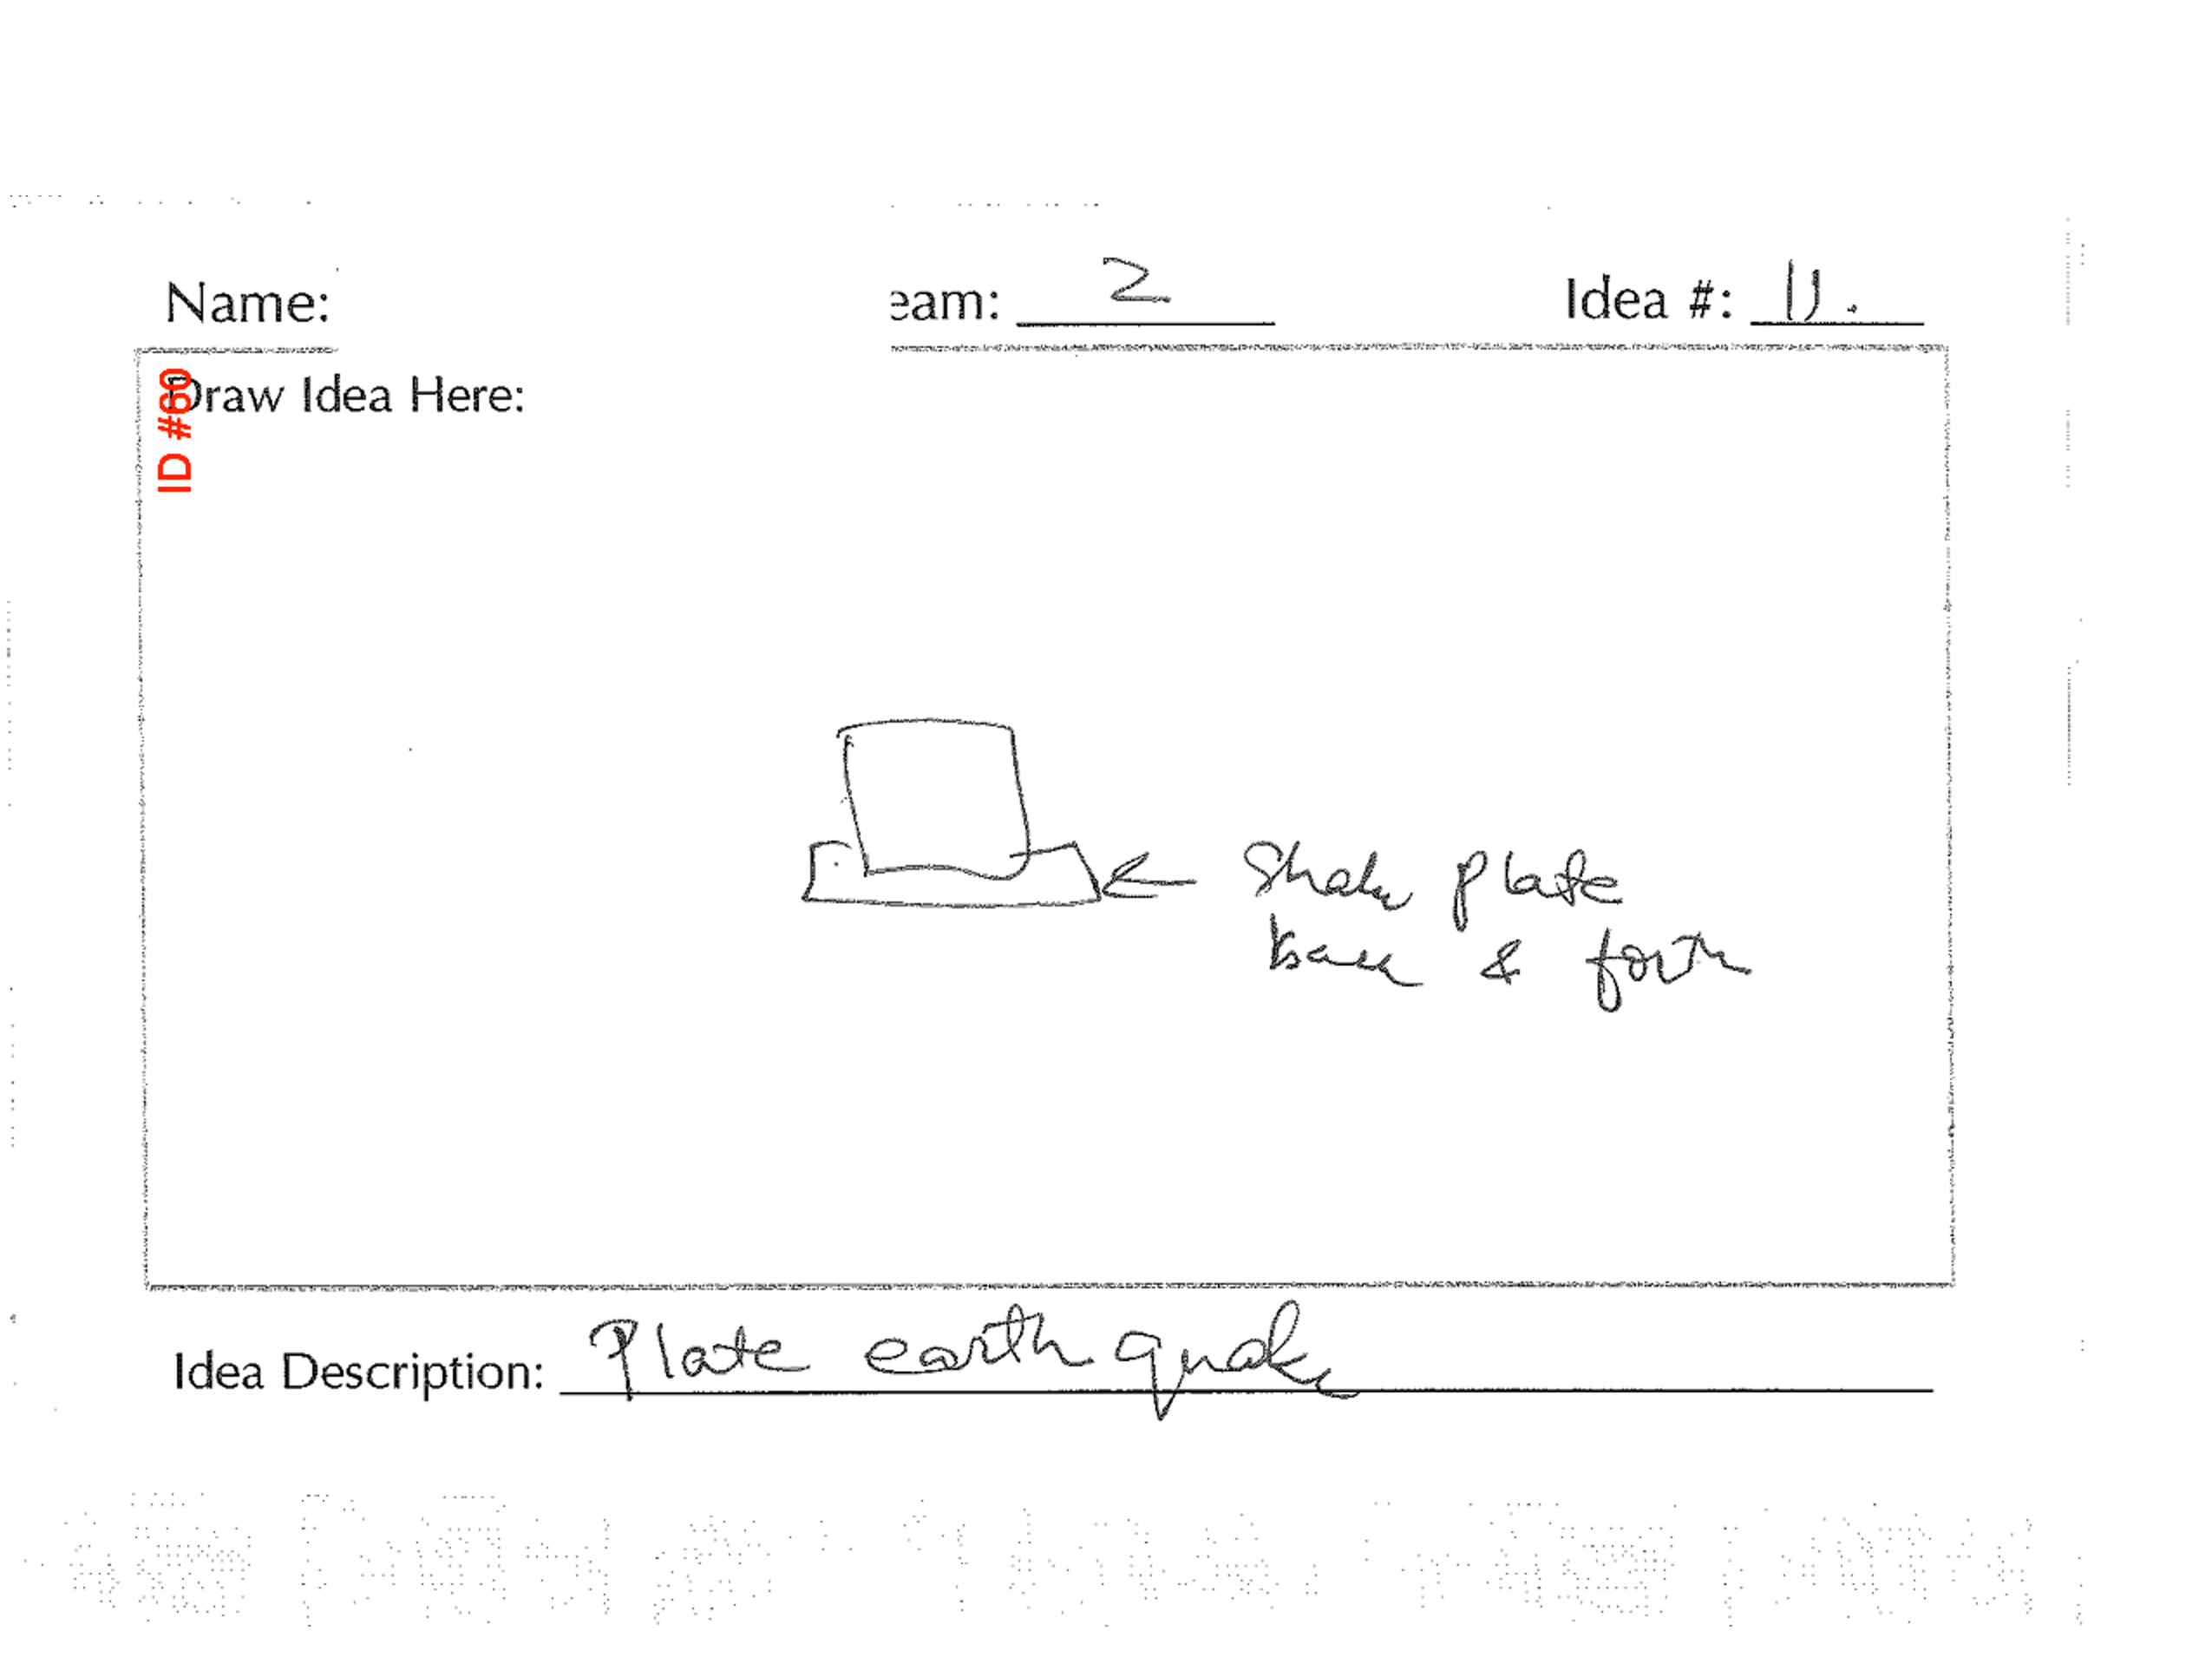 Name:
eam: 2
Idea #: 11.
ID #60
Draw Idea Here:
Shake plate
back & forth
Idea Description: Plate earth quake